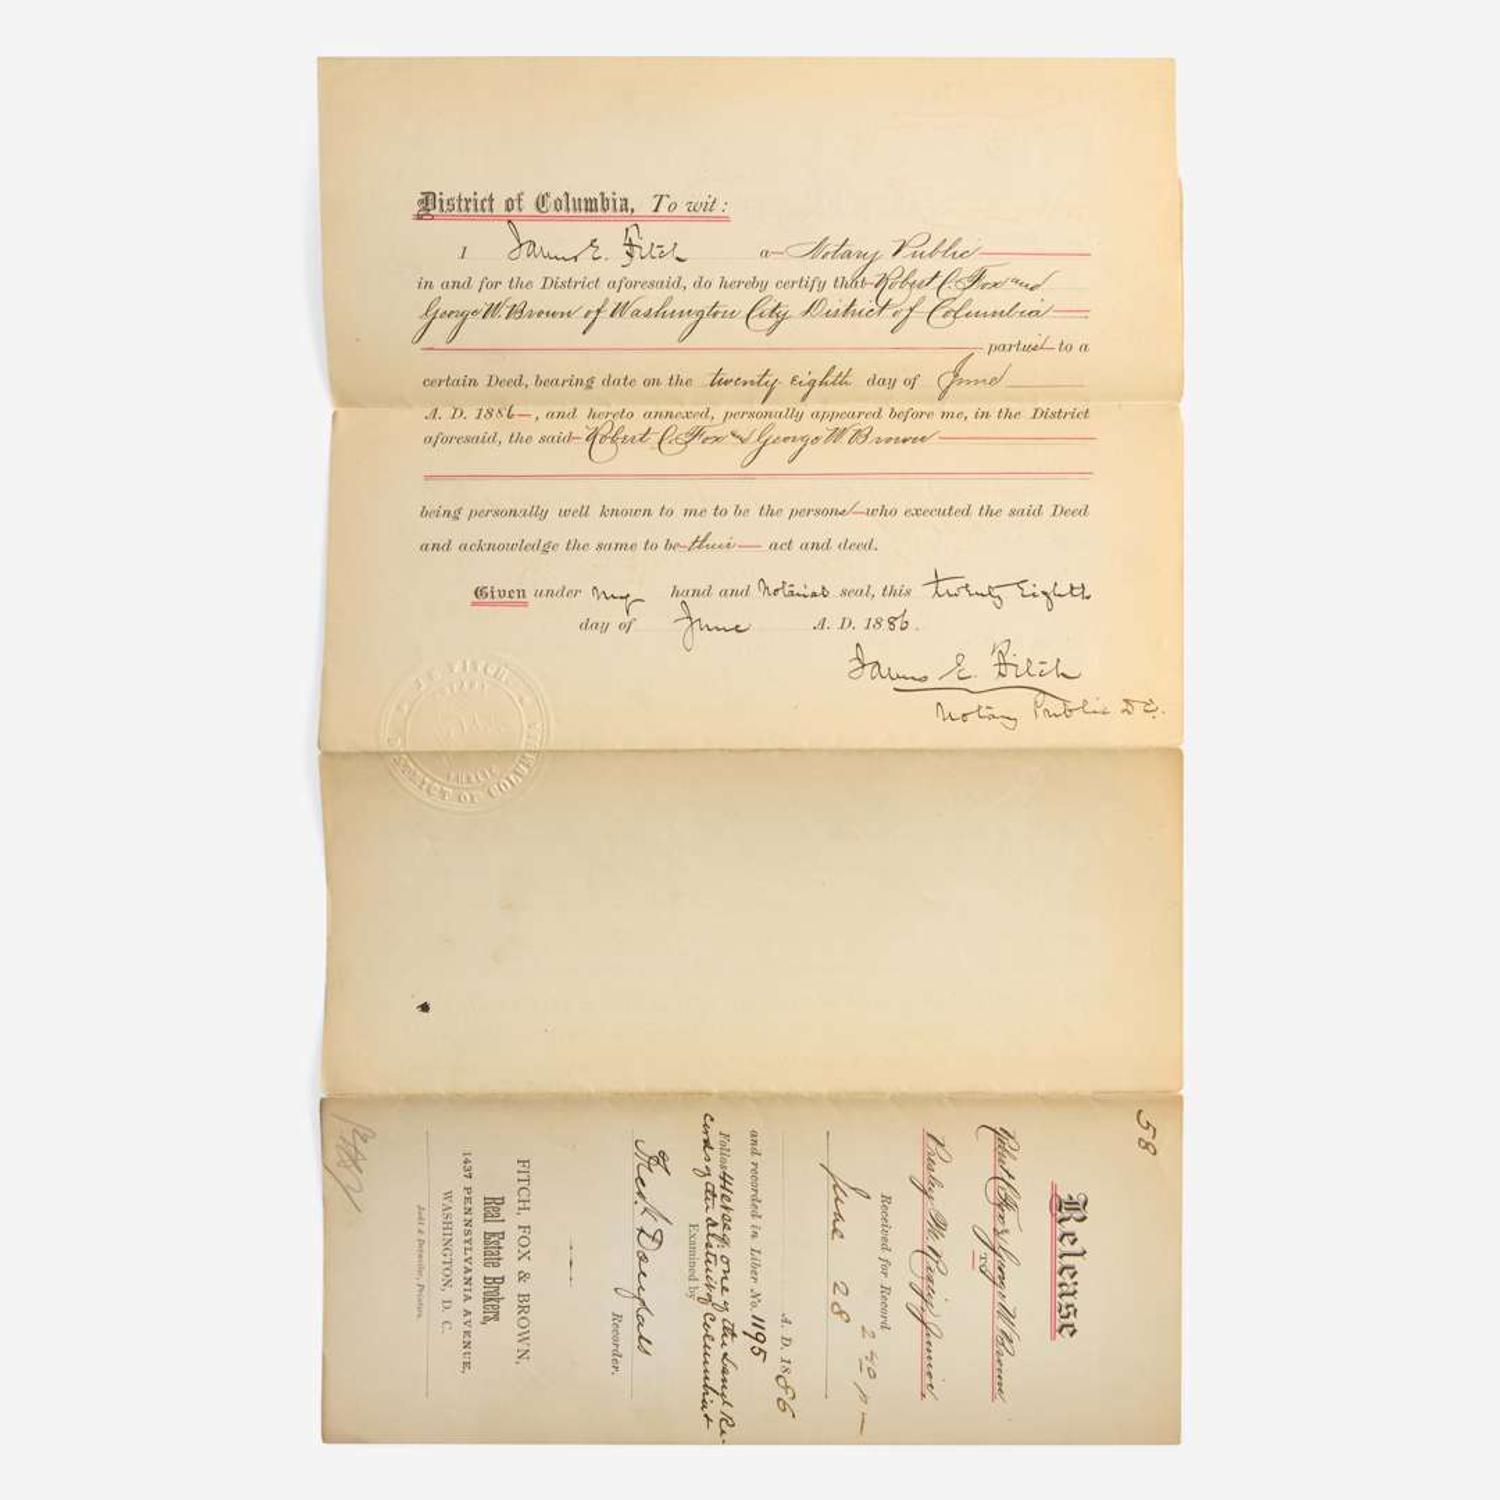 District of Columbia, To wit:
I James E. Fitch a Notary Public
in and for the District aforesaid, do hereby certify that Robert C. Fox and
George W. Brown of Washington City District of Columbia
parties to a
certain Deed, bearing date on the twenty eighth day of June
A. D. 1886, and hereto annexed, personally appeared before me, in the District
aforesaid, the said Robert C. Fox and George W. Brown
being personally well known to me to be the persons who executed the said Deed
and acknowledge the same to be their act and deed.
Given under my hand and Notarial seal, this twenty Eighth
day of June A. D. 1886.
James E. Fitch
Notary Public D.C.
J. E. FITCH
NOTARY
PUBLIC
DISTRICT OF COLUMBIA
58
Release
Robert C. Fox & George W. Brown
TO
Presley M. Rixey Junior
Received for Record
2 40 p m
June 28
A. D. 1886
and recorded in Liber No. 1195
Folio 441 et seq. one of the Land Re-
cords of the District of Columbia
Examined by
Fredk Douglass
Recorder.
FITCH, FOX & BROWN,
Real Estate Brokers,
1437 PENNSYLVANIA AVENUE,
WASHINGTON, D. C.
Judd & Detweiler, Printers.